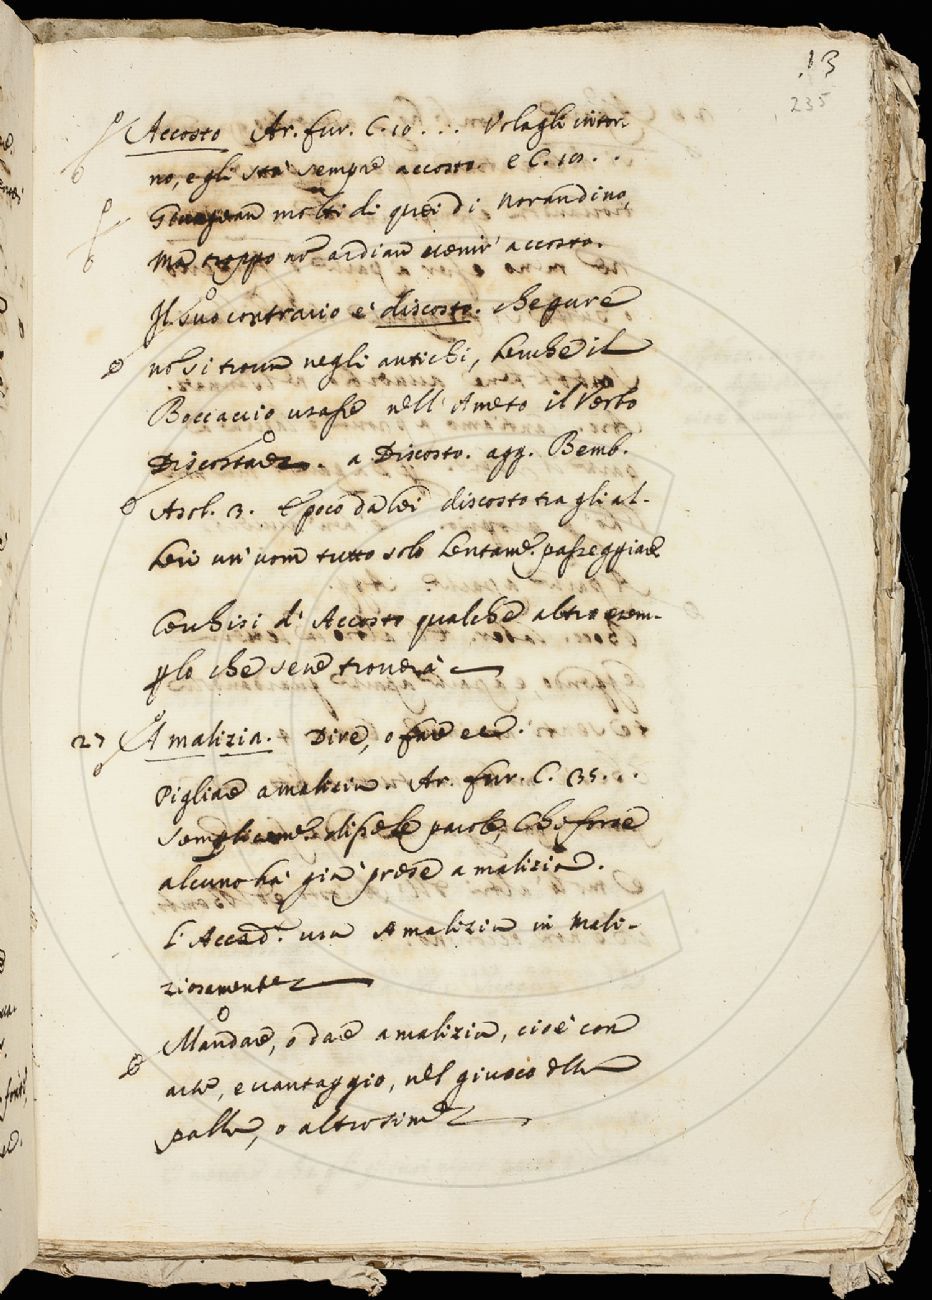 13
235
Accosto Ar. fur. C. 10 . . . Volagli intor-
no, e gli sta' sempre accosto e C. 10 . .
Giungean molti di quei di Norandino,
Ma troppo nō ardian venir' accosto.
Il suo contrario e' discosto. che pure
nō si trova negli antichi, benche il
Boccaccio usasse nell' Ameto il Verbo
Discostare. a Discosto. agg. Bemb.
Asol. 3. E poco da lei discosto tra gli al-
beri un' uom tutto solo lentamē. passeggiare
Cerchisi d' Accosto qualche altro exem-
plo che se ne trovera'
27 A malizia. Dire, o fare ec.
Pigliare a malizia Ar. fur. C. 35 . .
Semplicemē. disse le parole, che forse
alcuno ha' gia' prese a malizia.
L' Accad.ª usa A malizia in Mali-
ziosamente
Mandare, o dare a malizia, cioe' con
arte, e vantaggio, nel giuoco della
palla, o altro sim.